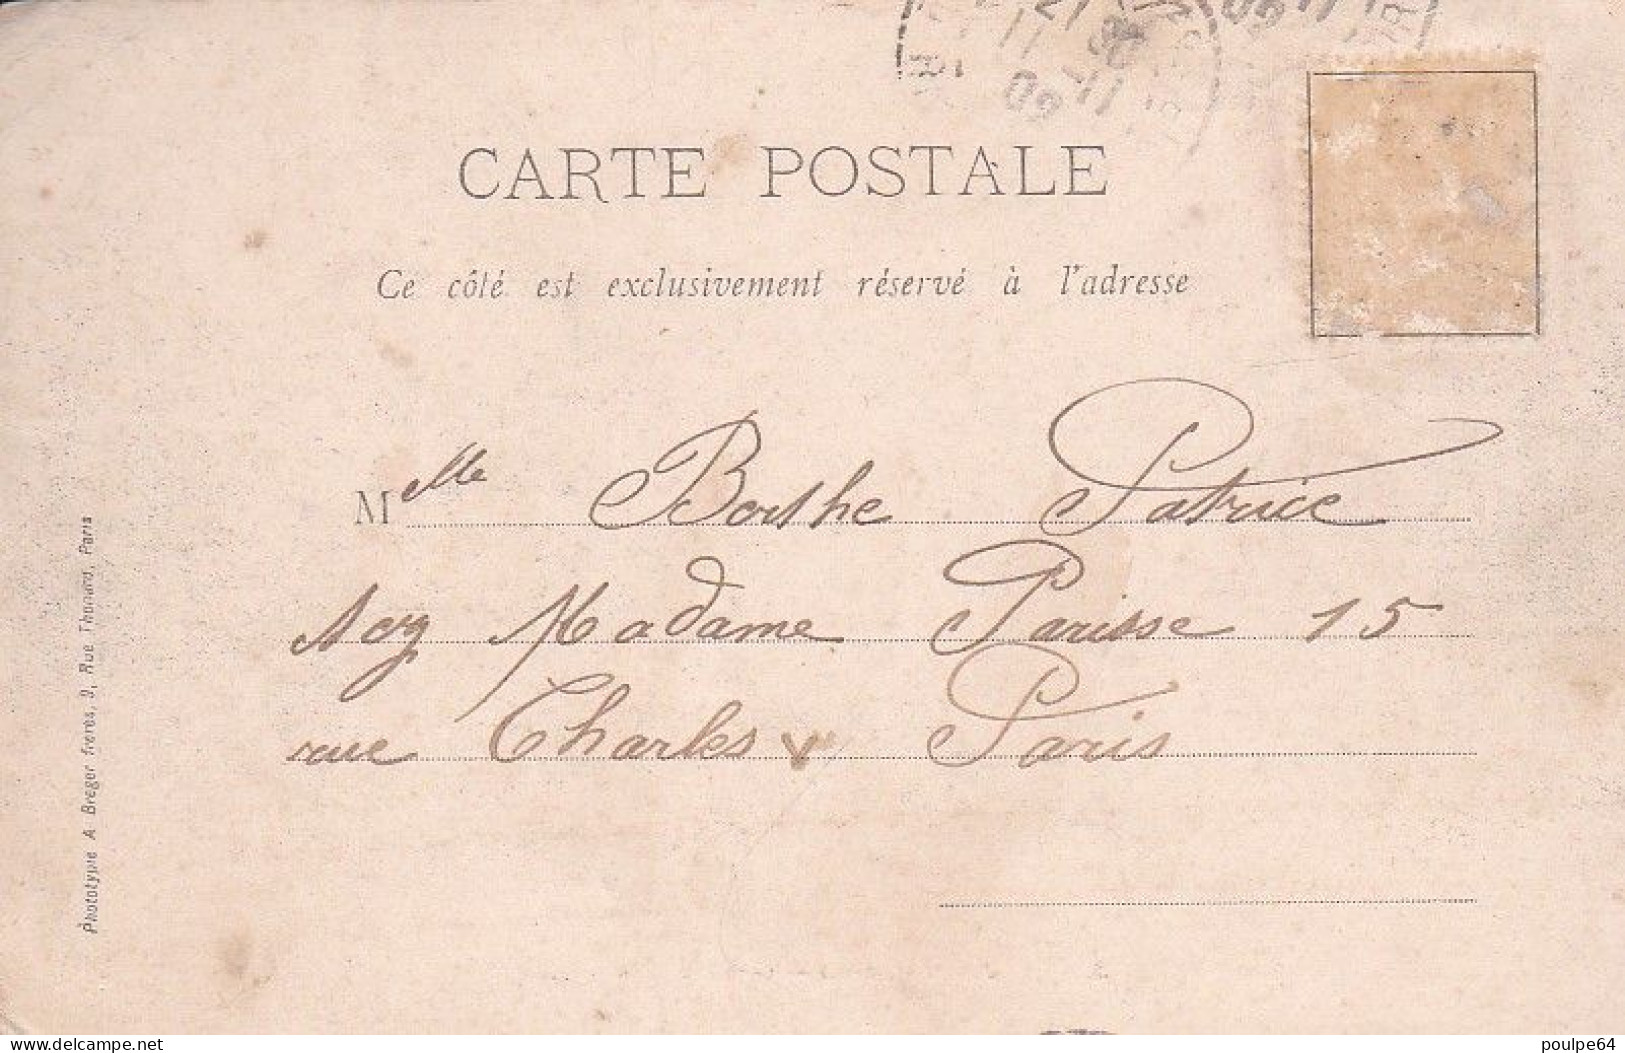 CARTE POSTALE
Ce côté est exclusivement réservé à l'adresse
Mlle Berthe Patrice
Madame Parisse 15
rue Charles V Paris
Phototypie A Breger frères, 9, Rue Thénard, Paris
poulpe64
www.delcampe.net